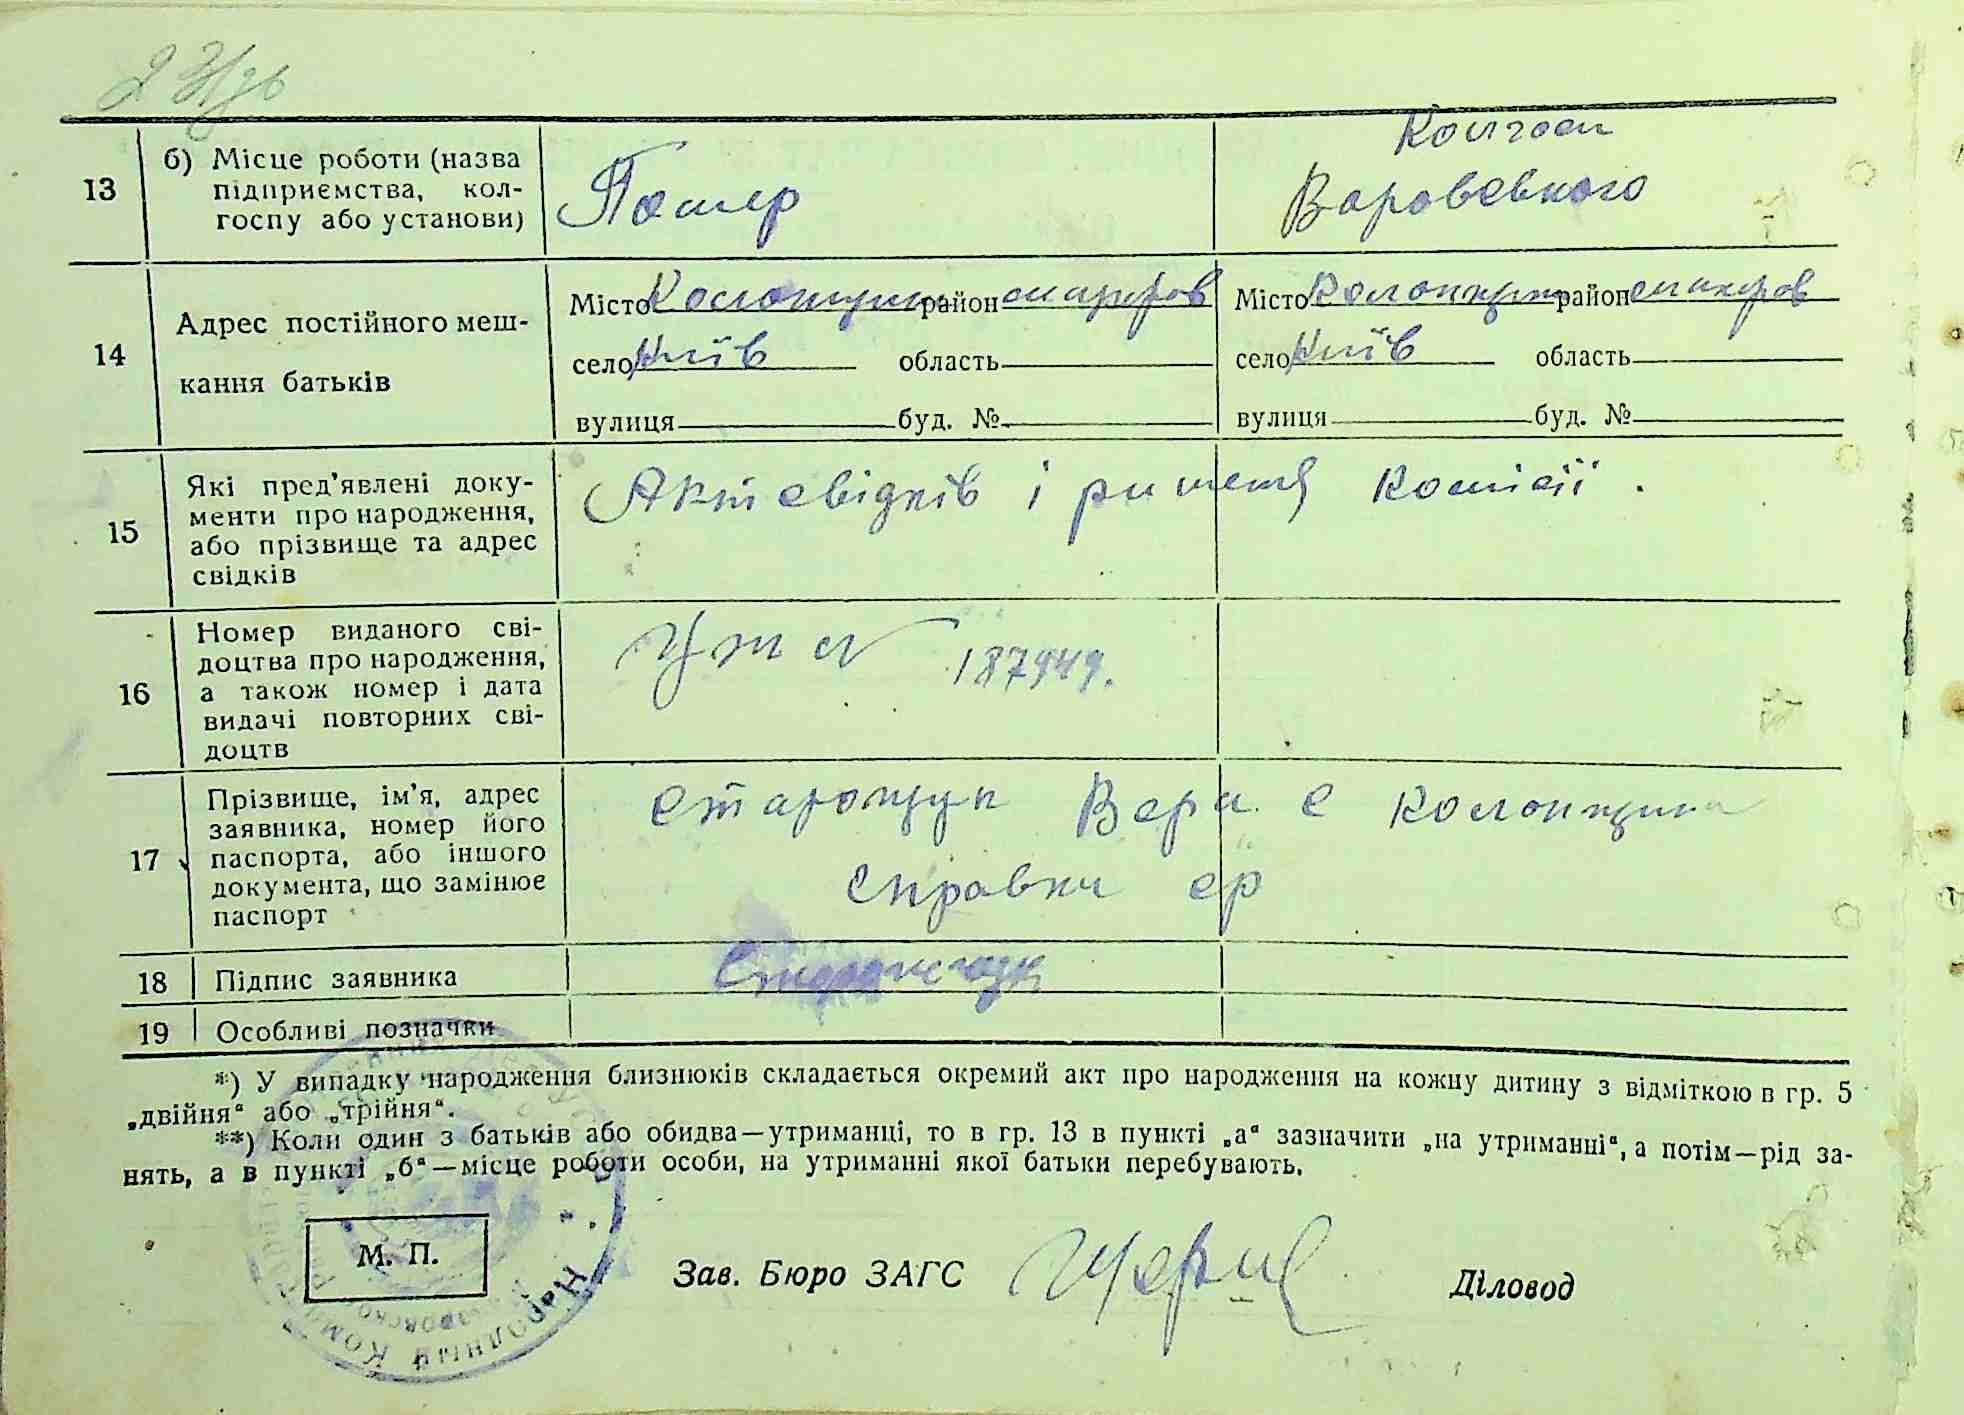 13
б) Місце роботи (назва
підприємства, кол-
госпу або установи)
Помер
Колгосп
Воровского
14
Адрес постійного меш-
кання батьків
Місто Колонщина район макаров
село Київ область
вулиця буд. №
Місто Колонщина район макаров
село Київ область
вулиця буд. №
15
Які пред'явлені доку-
менти про народження,
або прізвище та адрес
свідків
Акт свідків і ришення комісії.
16
Номер виданого сві-
доцтва про народження,
а також номер і дата
видачі повторних сві-
доцтв
187949.
17
Прізвище, ім'я, адрес
заявника, номер його
паспорта, або іншого
документа, що замінює
паспорт
Старощук Вера с Колонщина
Справка ср
18
Підпис заявника
19
Особливі позначки
*) У випадку народження близнюків складається окремий акт про народження на кожну дитину з відміткою в гр. 5
„двійня“ або „трійня“.
**) Коли один з батьків або обидва—утриманці, то в гр. 13 в пункті „а“ зазначити „на утриманні“, а потім—рід за-
нять, а в пункті „б“—місце роботи особи, на утриманні якої батьки перебувають.
М. П.
Зав. Бюро ЗАГС
Діловод
Народный Ком